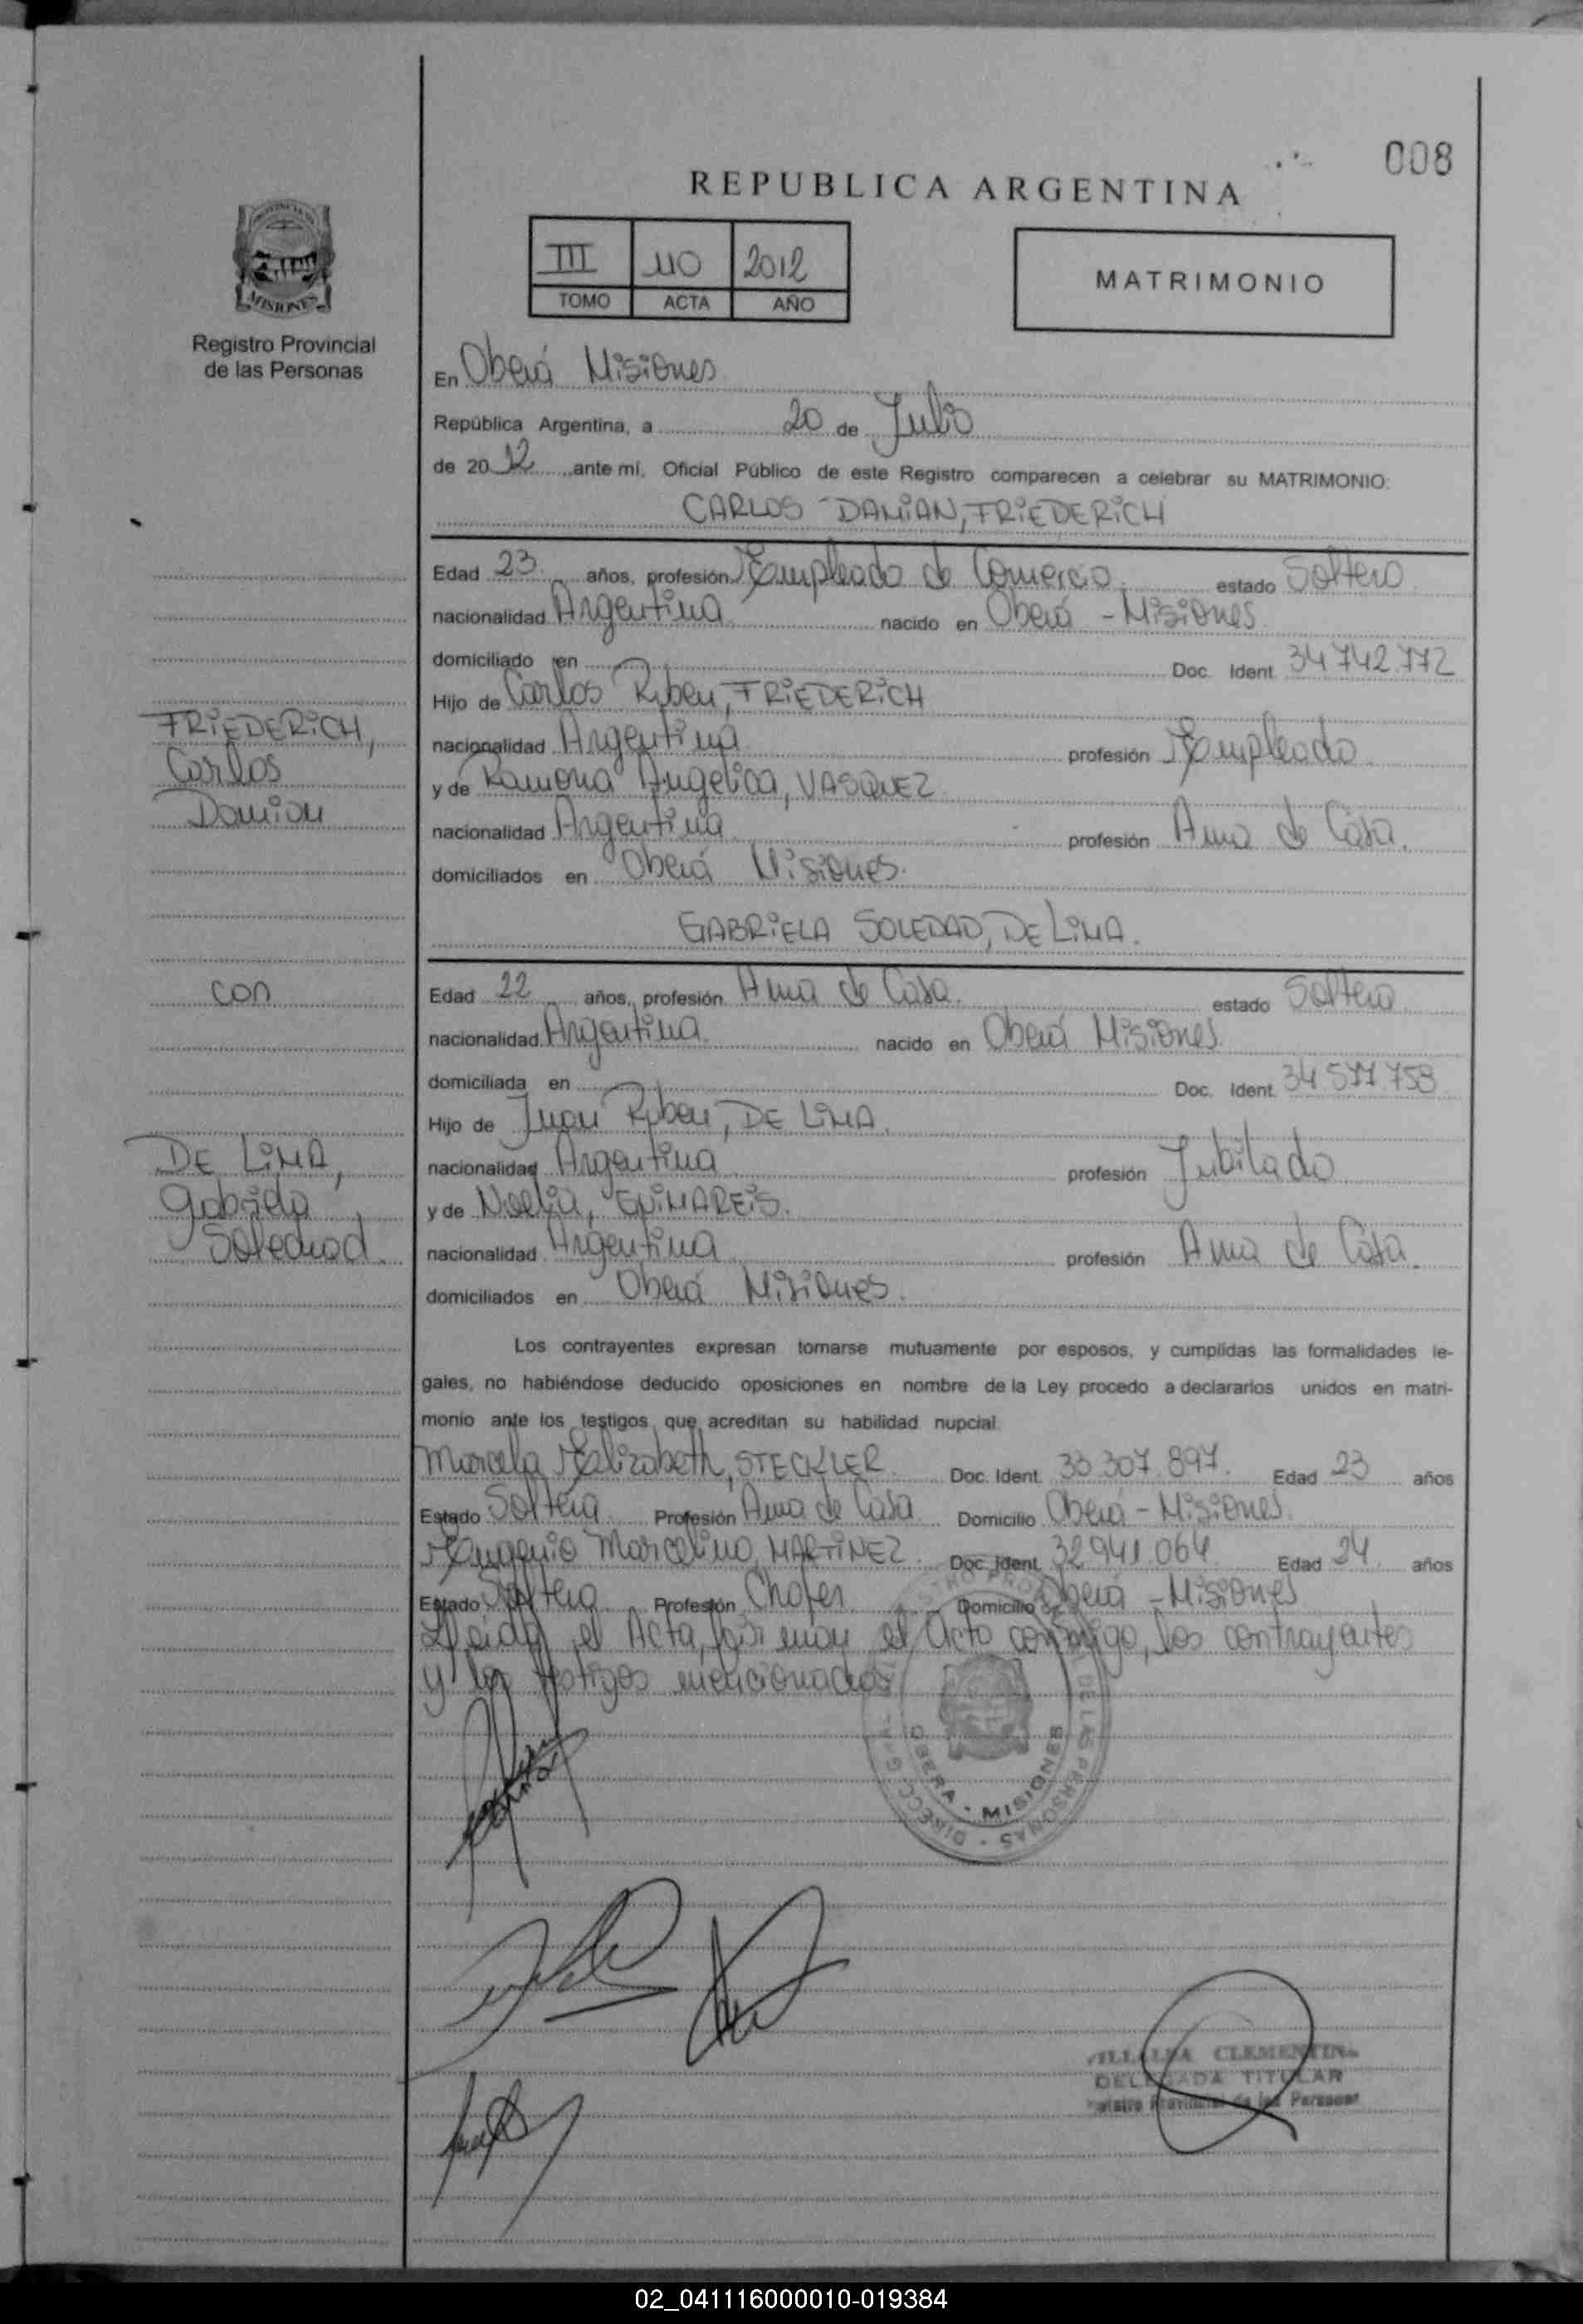 008
REPUBLICA ARGENTINA
MISIONES
Registro Provincial
de las Personas
III 110 2012
TOMO ACTA AÑO
MATRIMONIO
En Oberá Misiones
República Argentina, a 20 de Julio
de 2012 ante mí, Oficial Público de este Registro comparecen a celebrar su MATRIMONIO:
CARLOS DAMIAN, FRIEDERICH
Edad 23 años, profesión Empleado de Comercio. estado Soltero
nacionalidad Argentina nacido en Oberá - Misiones
domiciliado en Doc. Ident. 34 742.772
Hijo de Carlos Ruben, FRIEDERICH
nacionalidad Argentina profesión Empleado
y de Ramona Angelica, VASQUEZ
nacionalidad Argentina profesión Ama de Casa.
domiciliados en Oberá Misiones.
FRIEDERICH,
Carlos
Damian
GABRIELA SOLEDAD, DE LIMA.
Edad 22 años, profesión Ama de Casa. estado Soltera
nacionalidad Argentina nacido en Oberá Misiones
domiciliada en Doc. Ident. 34 577 758
Hijo de Juan Ruben, DE LIMA.
nacionalidad Argentina profesión Jubilado
y de Noelia, GUIMAREIS.
nacionalidad Argentina profesión Ama de Casa.
domiciliados en Oberá Misiones.
con
DE LIMA,
Gabriela
Soledad.
Los contrayentes expresan tomarse mutuamente por esposos, y cumplidas las formalidades le-
gales, no habiéndose deducido oposiciones en nombre de la Ley procedo a declararlos unidos en matri-
monio ante los testigos que acreditan su habilidad nupcial.
Marcela Elizabeth, STECKLER Doc. Ident. 33 307.897. Edad 23 años
Estado Soltera Profesión Ama de Casa Domicilio Oberá - Misiones
Eugenio Marcelino, MARTINEZ Doc. Ident. 32941.064 Edad 24 años
Estado Profesión Chofer Domicilio Oberá - Misiones
Leida el Acta, firman el Acto conmigo, los contrayentes
y los testigos mencionados
OBERA - MISIONES
DE LAS PERSONAS
VILLALBA CLEMENTINA
DELEGADA TITULAR
Registro Provincial de las Personas
02_041116000010-019384